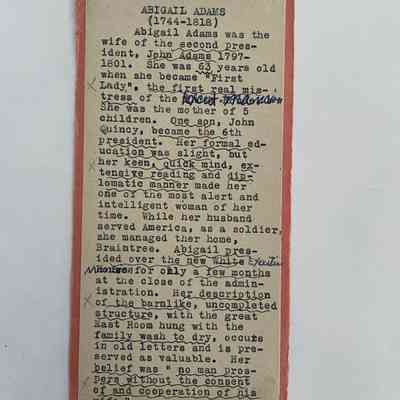 ABIGAIL ADAMS
(1744-1818)
Abigail Adams was the
wife of the second pres-
ident, John Adams 1797-
1801. She was 63 years old
when she became "First
Lady", the first real mis-
tress of the
She was the mother of 5
children. One son, John
Quincy, became the 6th
president. Her formal ed-
ucation was slight, but
her keen, quick mind, ex-
tensive reading and dip-
lomatic manner made her
one of the most alert and
intelligent woman of her
time. While her husband
served America, as a soldier,
she managed ther home,
Braintree. Abigail pres-
ided over the new White Executive
Mansion for only a few months
at the close of the admin-
istration. Her description
of the barnlike, uncompleted
structure, with the great
East Room hung with the
family wash to dry, occurs
in old letters and is pre-
served as valuable. Her
belief was " no man pros-
pers without the consent
of and cooperation of his